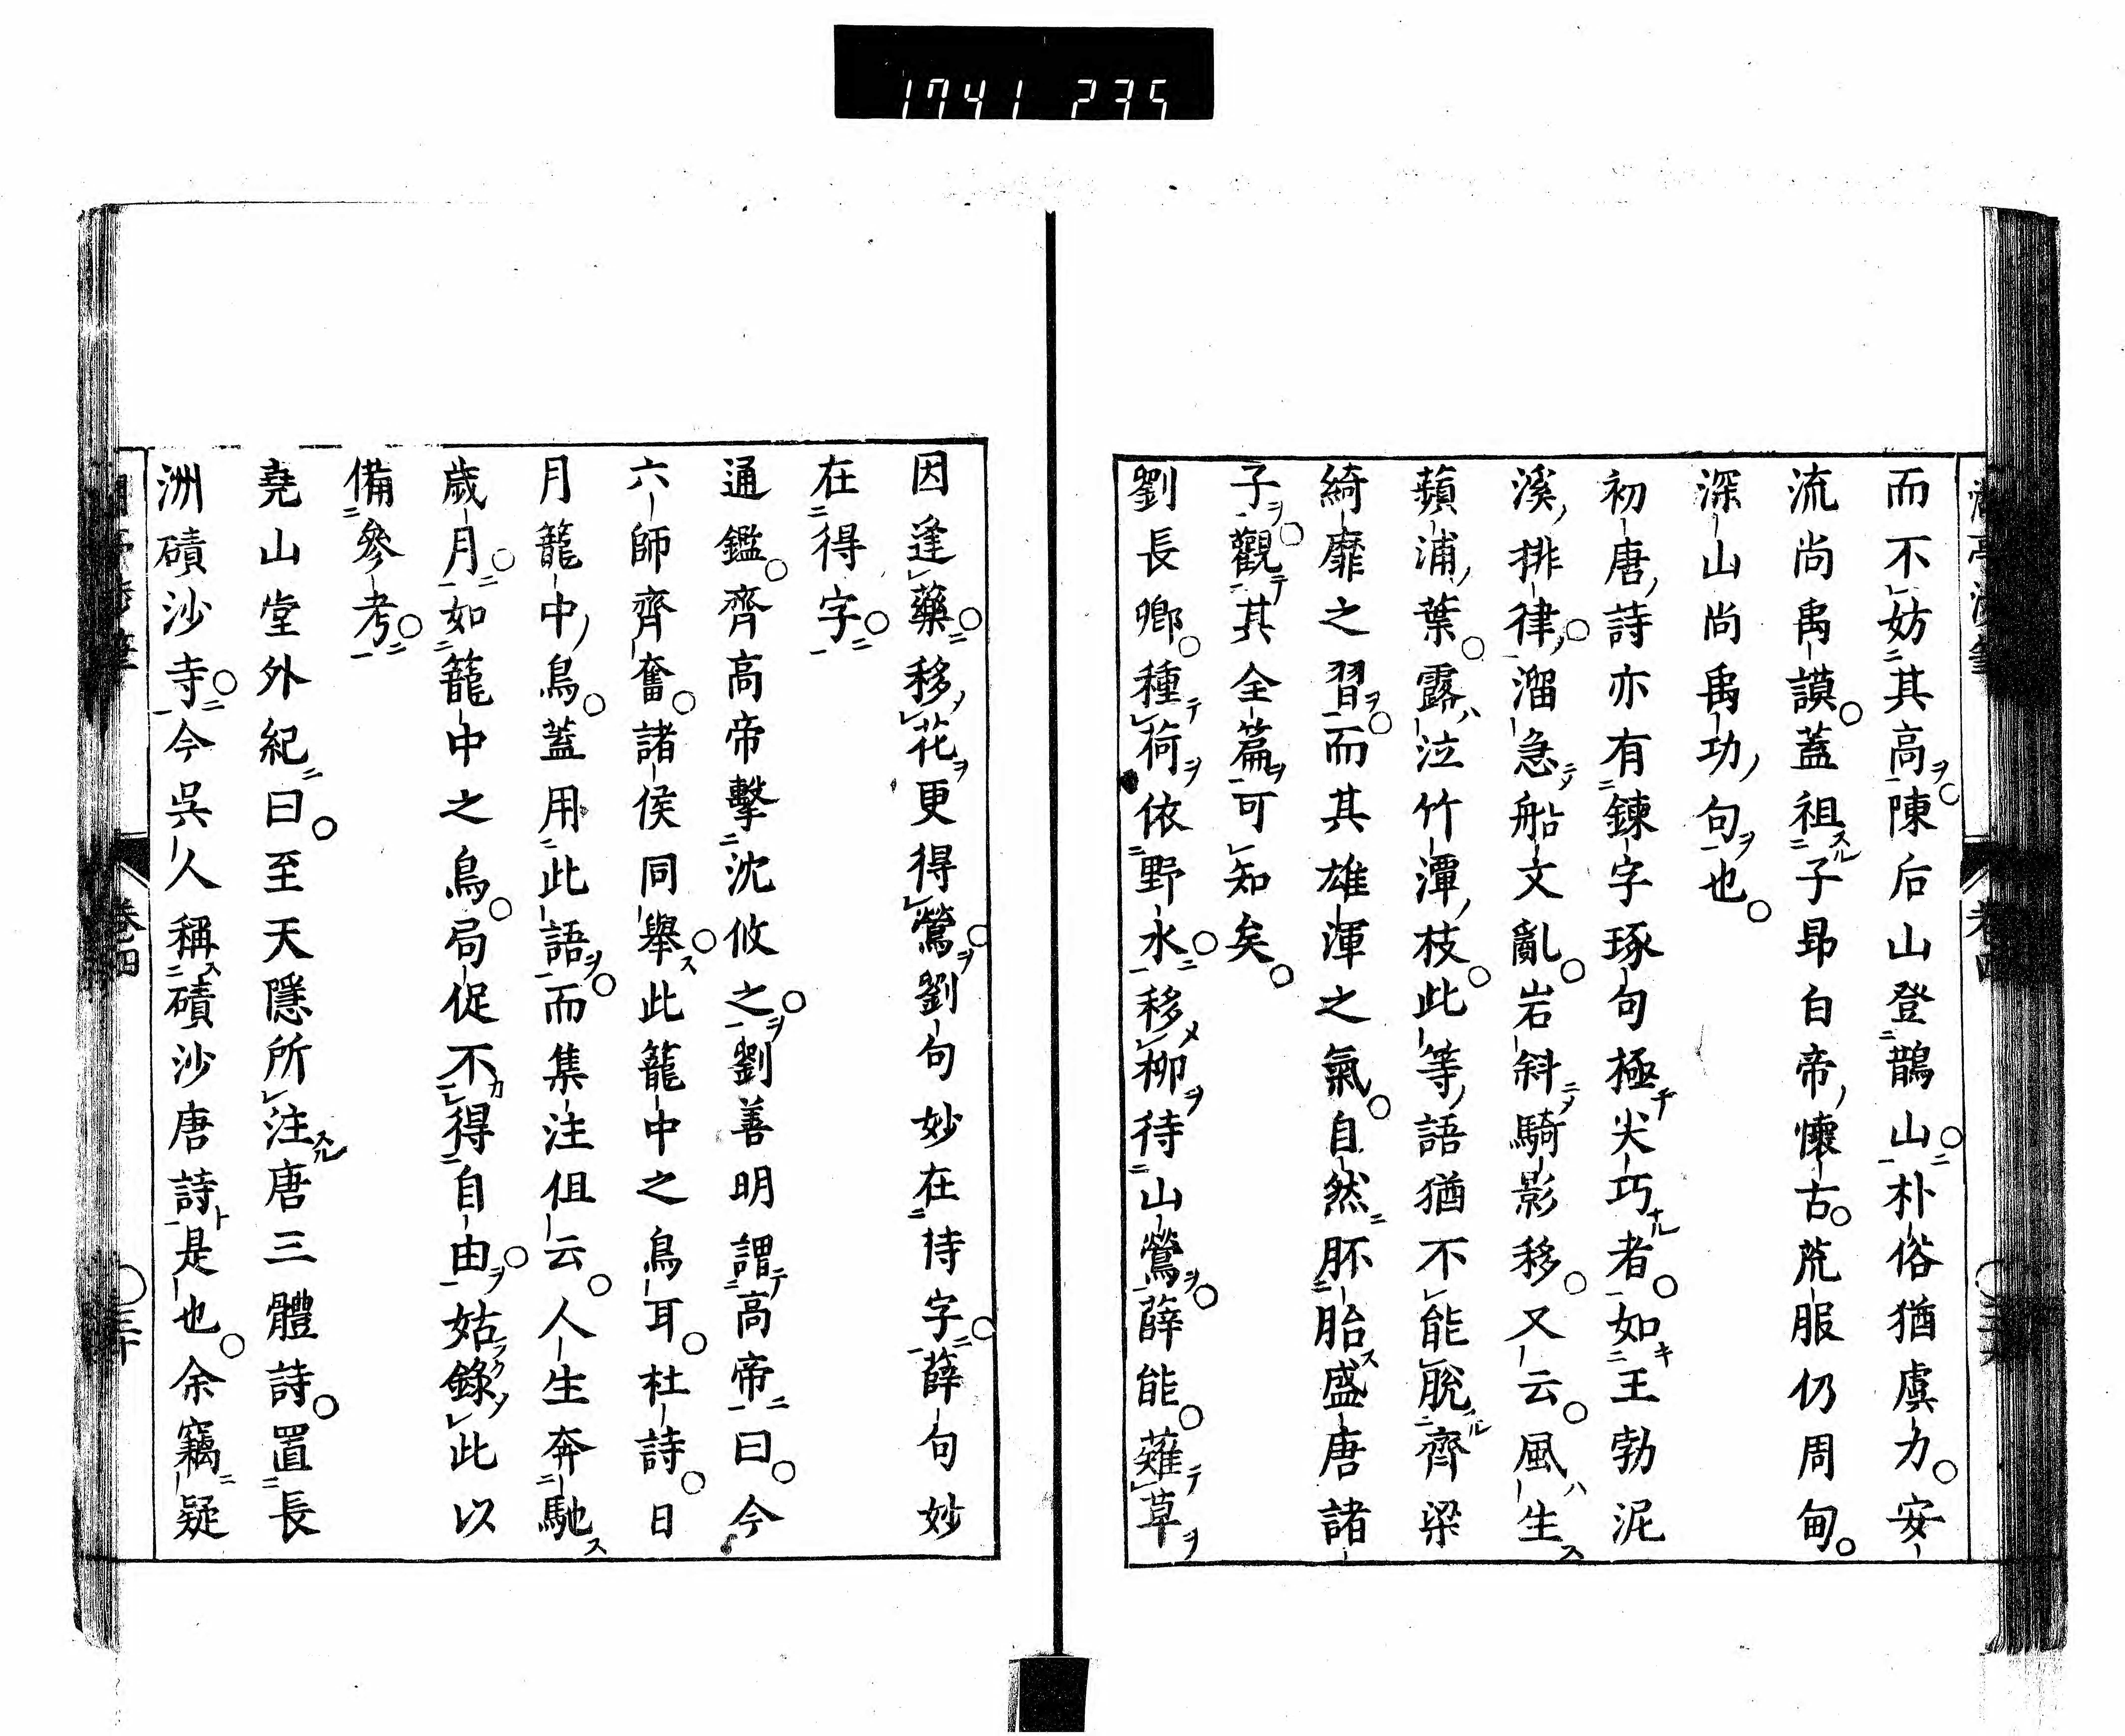 1741 235
而不妨其高陳后山登鵲山朴俗猶虞力安
流尚禹謨蓋祖子昻白帝懷古荒服仍周甸
深山尚禹功句也
初唐詩亦有鍊字琢句極尖巧者如王勃泥
溪排律溜急船文亂岩斜騎影移又云風生
蘋浦葉露泣竹潭枝此等語猶不能脫齊梁
綺靡之習而其雄渾之氣自然胚胎盛唐諸
子觀其全篇可知矣
劉長卿種荷依野水移柳待山鶯薛能薙草
因逢藥移花更得鶯劉句妙在待字薛句妙
在得字
通鑑齊高帝擊沈攸之劉善明謂高帝曰今
六師齊奮諸侯同舉此籠中之鳥耳杜詩日
月籠中鳥蓋用此語而集注但云人生奔馳
歲月如籠中之鳥局促不得自由姑錄此以
備參考
堯山堂外紀曰至天隱所注唐三體詩置長
洲磧沙寺今吳人稱磧沙唐詩是也余竊疑
卷四
三十